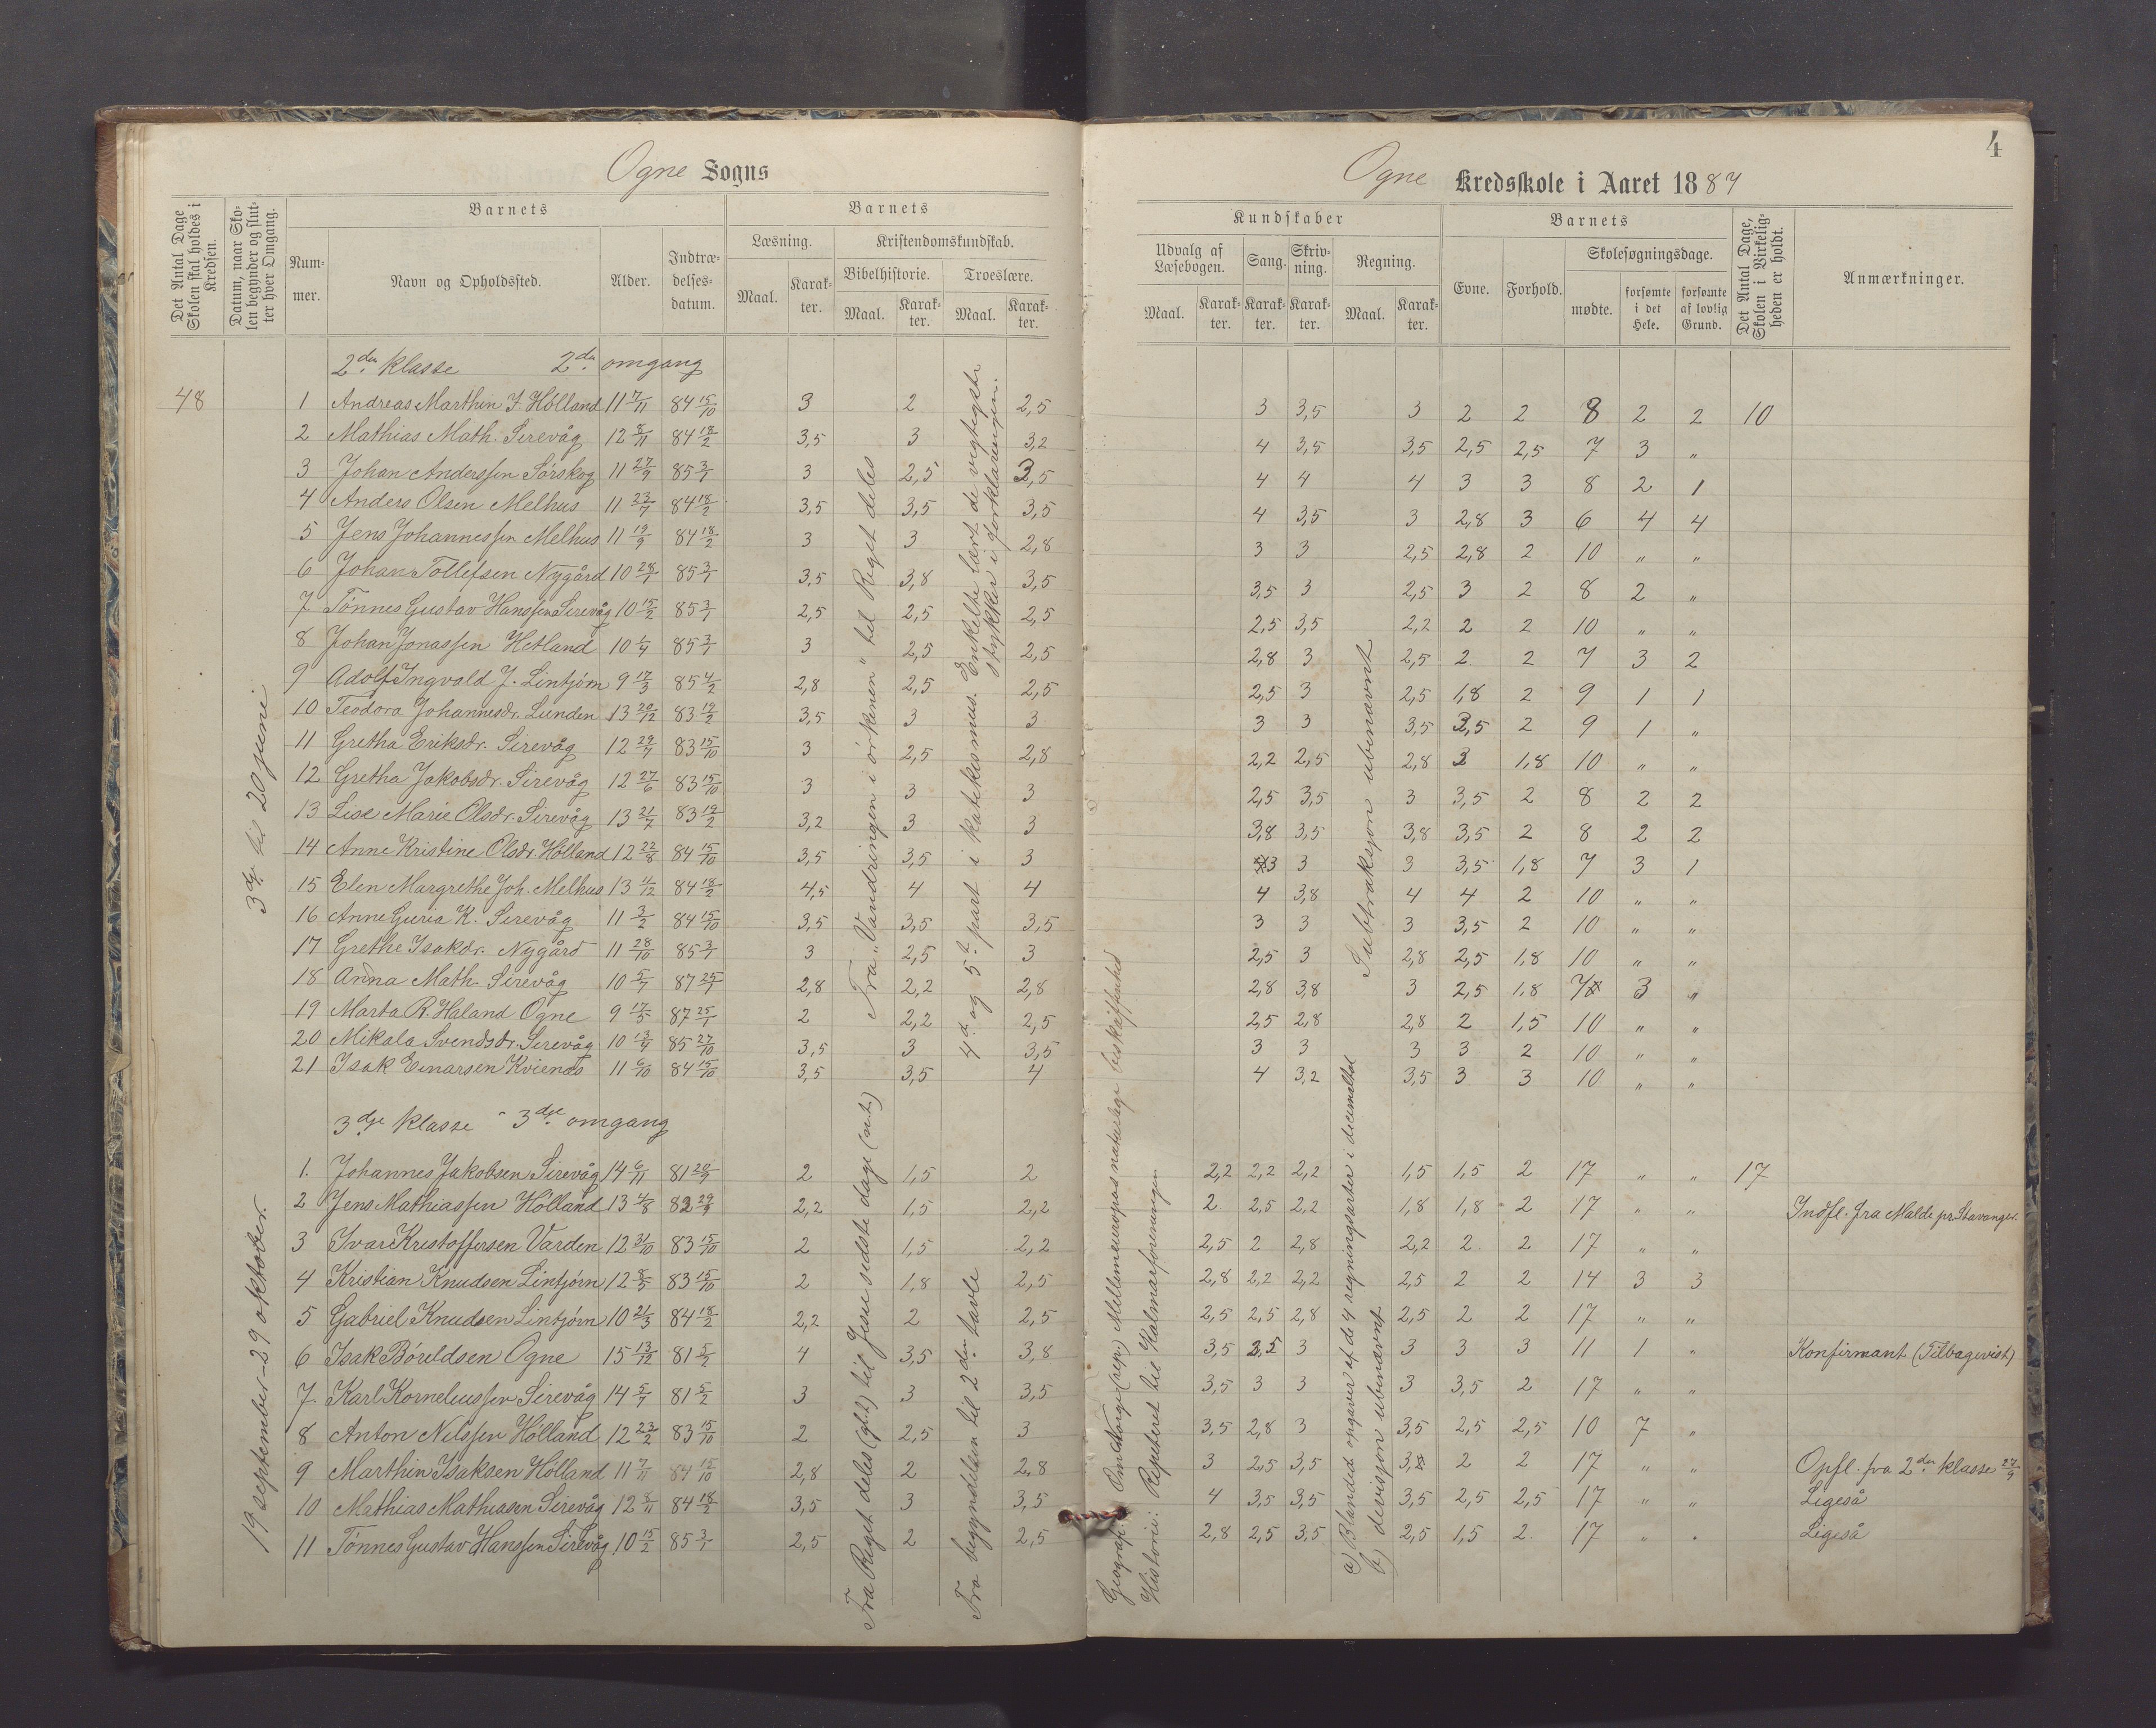 4
Ogne Sogns
Ogne Kredsskole i Aaret 1887
Det Antal Dage Skolen skal holdes i Kredsen.
Datum, naar Skolen begynder og slutter hver Omgang.
Barnets
Nummer.
Navn og Opholdssted.
Alder.
Indtrædelsesdatum.
Barnets
Læsning.
Maal.
Karakter.
Kristendomskundskab.
Bibelhistorie.
Maal.
Karakter.
Troeslære.
Maal.
Karakter.
Kundskaber
Udvalg af Læsebogen.
Maal.
Karakter.
Sang.
Karakter.
Skrivning.
Karakter.
Regning.
Maal.
Karakter.
Barnets
Evne.
Forhold.
Skolesøgningsdage.
mødte.
forsømte i det Hele.
forsømte af lovlig Grund.
Det Antal Dage, Skolen i Virkeligheden er holdt.
Anmærkninger.
2den klasse 2den omgang
48
3dje til 20 juni
1 Andreas Marthin I. Hölland 11 7/11 84 15/10 3 2 2,5 3 3,5 3 2 2 8 2 2 10
2 Mathias Math. Sirevåg 12 8/11 84 18/2 3,5 3 3,2 4 3,5 3,5 2,5 2,5 7 3 "
3 Johan Anderssen Sörskog 11 27/9 85 3/1 3 2,5 3,5 4 4 4 3 3 8 2 1
4 Anders Olsen Melhus 11 23/7 84 18/2 3,5 3,5 3,5 4 3,5 3 2,8 3 6 4 4
5 Jens Johannessen Melhus 11 19/9 84 18/2 3 3 2,8 3 3 2,5 2,8 2 10 " "
6 Johan Tollefsen Nygård 10 28/1 85 3/1 3,5 3,8 3,5 3,5 3 2,5 3 2 8 2 "
7 Tönnes Gustav Hanssen Sirevåg 10 15/2 85 3/1 2,5 2,5 2,5 2,5 3,5 2,2 2 2 10 " "
8 Johan Jonassen Hetland 10 1/4 85 3/1 3 2,5 2,5 2,8 3 2,5 2 2 7 3 2
9 Adolf Ingvald J. Lintjörn 9 17/3 85 4/2 2,8 2,5 2,5 2,5 3 2,5 1,8 2 9 1 1
10 Teodora Johannesdr. Lunden 13 20/12 83 19/2 3,5 3 3 3 3 3,5 3,5 2 9 1 "
11 Gretha Eriksdr. Sirevåg 12 29/7 83 15/10 3 2,5 2,8 2,2 2,5 2,8 3 1,8 10 " "
12 Gretha Jakobsdr. Sirevåg 12 27/6 83 15/10 3 3 3 2,5 3,5 3 3,5 2 8 2 2
13 Lise Marie Olsdr. Sirevåg 13 21/7 83 19/2 3,2 3 3 3,8 3,5 3,8 3,5 2 8 2 2
14 Anne Kristine Olsdr. Hölland 12 22/8 84 15/10 3,5 3,5 3 3 3 3 3,5 1,8 7 3 1
15 Elen Margrethe Joh. Melhus 13 11/12 84 18/2 4,5 4 4 4 3,8 4 4 2 10 " "
16 Anne Guria K. Sirevåg 11 3/2 84 15/10 3,5 3,5 3,5 3 3 3 3,5 2 10 " "
17 Grethe Isakdr. Nygård 11 28/10 85 3/1 3 2,5 3 2,5 3 2,8 2,5 1,8 10 " "
18 Anna Math. Sirevåg 10 5/7 87 25/1 2,8 2,2 2,8 2,8 3,8 3 2,5 1,8 7 3 "
19 Marta R. Haland Ogne 9 17/5 87 25/1 2 2,2 2,5 2,5 2,8 2,8 2 1,5 10 " "
20 Mikala Svendsdr. Sirevåg 10 13/4 85 27/10 3,5 3 3,5 3 3 3 3 2 10 " "
21 Isak Einarsen Kvienes 11 6/10 84 15/10 3,5 3,5 4 4 3,2 3,5 3 3 10 " "
Fra "Vandringen i örkenen" til Riget deles
4de og 5te part i katekismus. Enkelte lært de vigtigste
stykker i forklaringen.
Subtraksjon ubenævnt
3dje klasse - 3dje omgang
19 september - 29 oktober.
1. Johannes Jakobsen Sirevåg 14 6/11 81 20/9 2 1,5 2 2,2 2,2 2,2 1,5 1,5 2 17 " " 17
2 Jens Mathiassen Hölland 13 4/8 82 29/9 2,2 1,5 2,2 2 2,5 2,2 1,8 1,8 2 17 " " Indfl. fra Malde pr. Stavanger.
3 Ivar Kristoffersen Varden 12 31/10 83 15/10 2 1,5 2,2 2,5 2 2,8 2,2 2 2 17 " "
4 Kristian Knudsen Lintjörn 12 8/5 83 15/10 2 1,8 2,5 2,8 2,2 2,2 2,5 2 2 14 3 3
5 Gabriel Knudsen Lintjörn 10 21/3 84 18/2 2,2 2 2,5 2,5 2,5 2,8 2,5 2 2 17 " "
6 Isak Böreldsen Ogne 15 13/12 81 5/2 4 3,5 3,8 3,5 2,5 3 3 3 3 11 1 " Konfirmant (Tilbagevist)
7. Karl Korneliussen Sirevåg 14 5/7 81 5/2 3 3 3,5 3,5 3 3 3 3,5 2 17 " "
8 Anton Nilssen Hölland 12 23/2 83 15/10 2 2,5 3 3,5 2,8 3 3,5 2,5 2,5 10 7 "
9 Marthin Isaksen Hölland 11 7/11 84 15/10 2,8 2 2,8 3 2,5 3,5 3, 2 2 17 " " Opfl. fra 2den klasse 27/9
10 Mathias Mathiasen Sirevåg 12 8/11 84 18/2 3,5 3 3,5 4 3,5 3,5 3,5 2,5 2,5 17 " " Ligeså
11 Tönnes Gustav Hanssen Sirevåg 10 15/2 85 3/1 2,5 2 2,5 2,8 2,5 3,5 2,5 1,5 2 17 " " Ligeså
Fra Riget deles (gl.t) til Jesu sidste dage (n.t.)
Fra begyndelsen til 2den tavle
Geografi: Om Norge (rep.) Mellemeuropas naturlige beskaffenhed
Historie: Repeteret til Kalmarforeningen
a) Blandede opgaver af de 4 regningsarter i decimaltal
b) devisjon ubenævnt